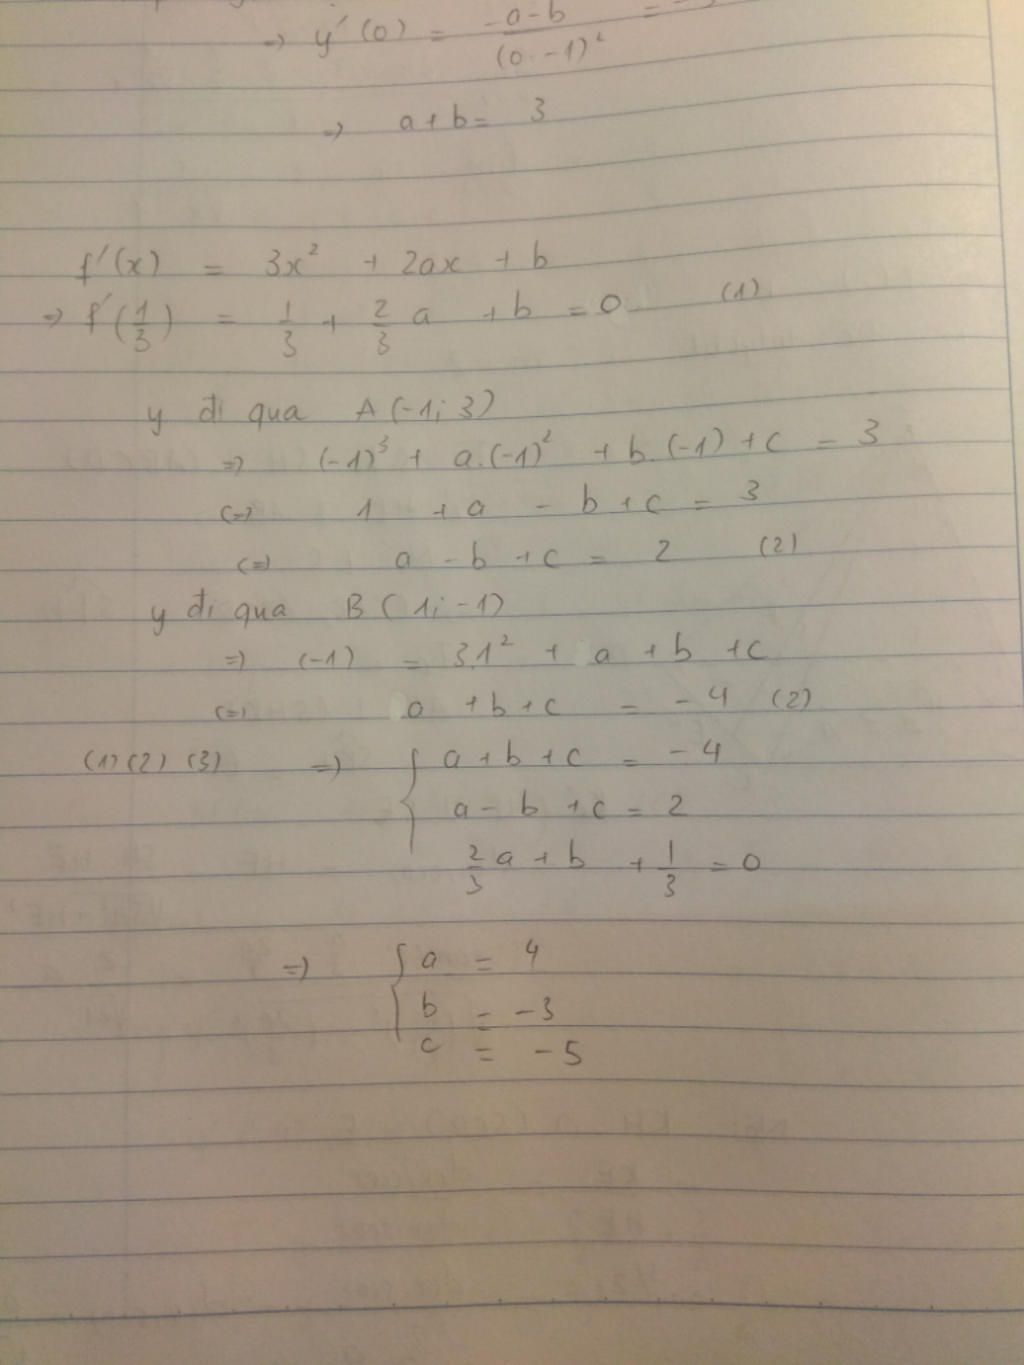 => y'(0) = -a-b / (0-1)² =
=> a+b= 3
f'(x) = 3x² + 2ax + b
=> f'(1/3) = 1/3 + 2/3 a + b = 0 (1)
y đi qua A(-1; 3)
=> (-1)³ + a.(-1)² + b.(-1) + c = 3
<=> 1 + a - b + c = 3
<=> a - b + c = 2 (2)
y đi qua B(1; -1)
=> (-1) = 3.1² + a + b + c
<=> a + b + c = -4 (2)
(1) (2) (3) => { a + b + c = -4
a - b + c = 2
2/3 a + b + 1/3 = 0
=> { a = 4
b = -3
c = -5